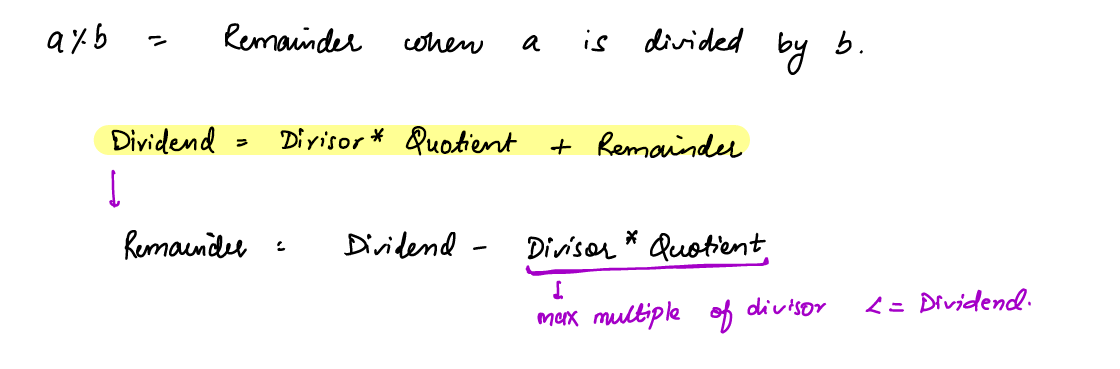 a % b = Remainder when a is divided by b.
Dividend = Divisor * Quotient + Remainder
Remainder = Dividend - Divisor * Quotient
max multiple of divisor <= Dividend.